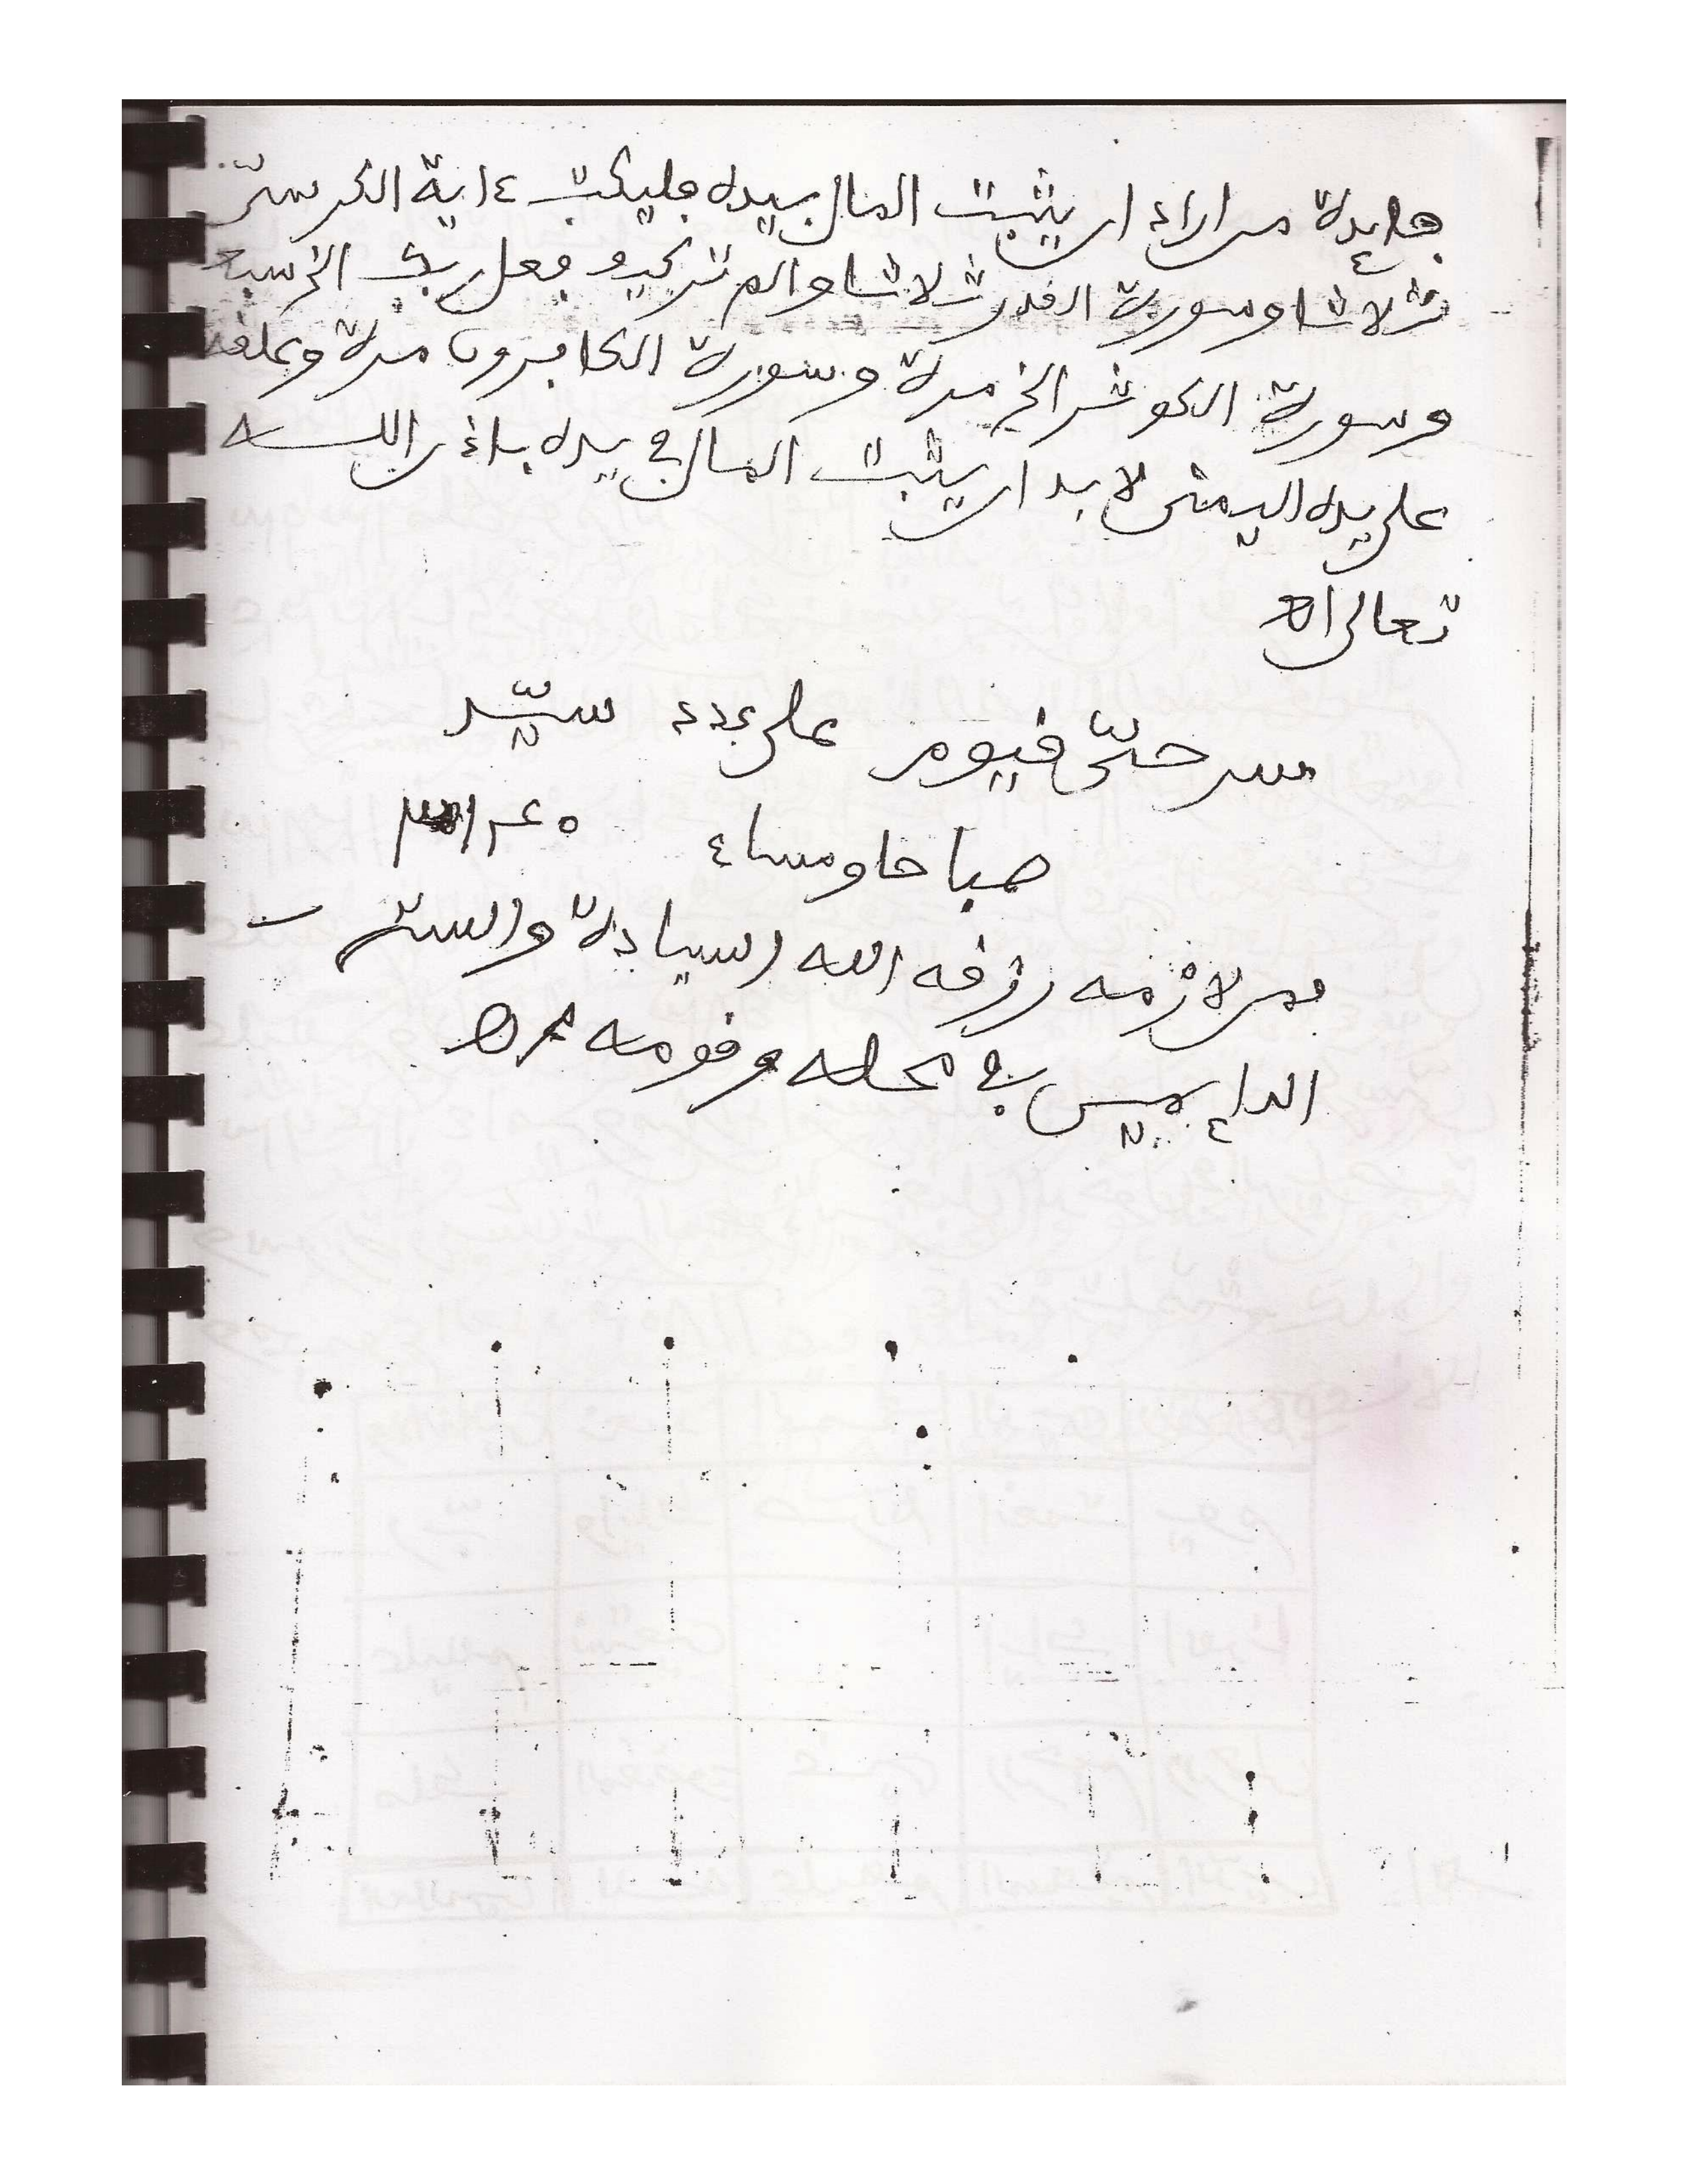 فايدة من اراد ان يثبت المال بيده فليكتب ءاية الكرسي
ثلاثا وسورة القدر ثلاثا والم تر كيف فعل ربك الخ سبع
وسورة الكوثر الخ مرة وسورة الكافرون مرة وعلقه
على يده اليمنى لا بد ان يثبت المال في يده باذن الله
تعالى اه
سر حي قيوم على عدد سيد
صباحا ومساء
فمن لازمه رزقه الله السيادة والستر
الدايمين في محله وقومه